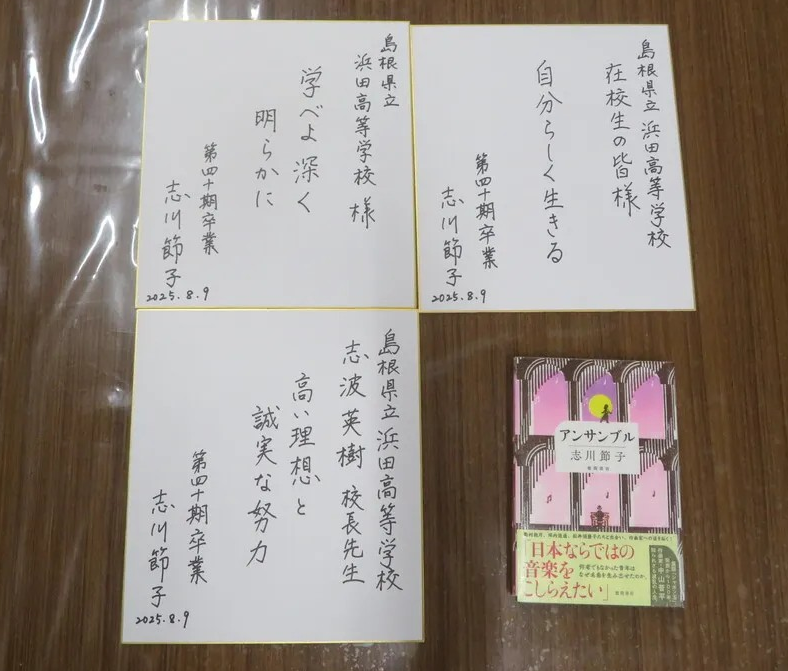 島根県立
浜田高等学校 様
学べよ 深く
明らかに
第四十期卒業
志川節子
2025.8.9
島根県立 浜田高等学校
在校生の皆様
自分らしく生きる
第四十期卒業
志川節子
2025.8.9
島根県立 浜田高等学校
志波英樹 校長先生
高い理想と
誠実な努力
第四十期卒業
志川節子
2025.8.9
アンサンブル
志川節子
徳間書店
「日本ならではの
音楽を
こしらえたい」
何者でもなかった青年は
なぜ未来を生み出せたのか。
徳間書店